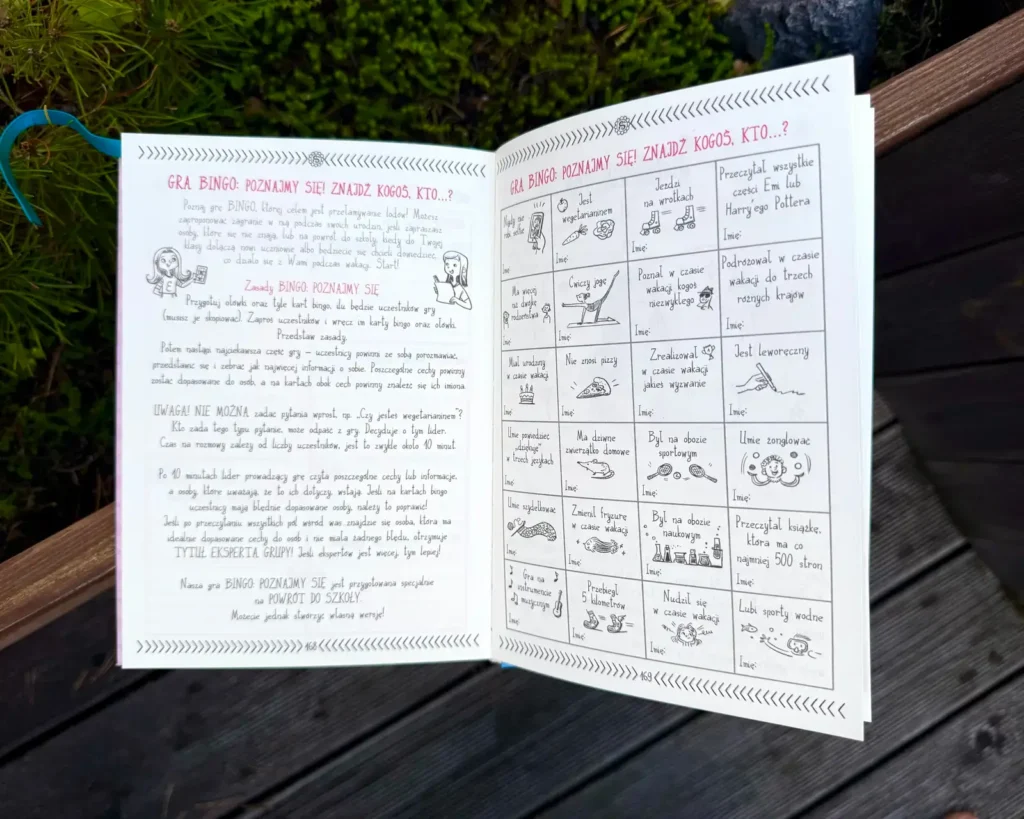 GRA BINGO: POZNAJMY SIĘ! ZNAJDŹ KOGOŚ, KTO...?
Poznaj grę BINGO, której celem jest przełamywanie lodów! Możesz
zaproponować zagranie w nią podczas swoich urodzin, jeśli zapraszasz
osoby, które się nie znają, lub na powrót do szkoły, kiedy do Twojej
klasy dołączą nowi uczniowie albo będziecie się chcieli dowiedzieć,
co działo się z Wami podczas wakacji. Start!
Zasady BINGO: POZNAJMY SIĘ
Przygotuj ołówki oraz tyle kart bingo, ilu będzie uczestników gry
(musisz je skopiować). Zaproś uczestników i wręcz im karty bingo oraz ołówki.
Przedstaw zasady.
Potem nastąpi najciekawsza część gry – uczestnicy powinni ze sobą porozmawiać,
przedstawić się i zebrać jak najwięcej informacji o sobie. Poszczególne cechy powinny
zostać dopasowane do osób, a na kartach obok cech powinny znaleźć się ich imiona.
UWAGA! NIE MOŻNA zadać pytania wprost, np. „Czy jesteś wegetarianinem"?
Kto zada tego typu pytanie, może odpaść z gry. Decyduje o tym lider.
Czas na rozmowy zależy od liczby uczestników, jest to zwykle około 10 minut.
Po 10 minutach lider prowadzący grę czyta poszczególne cechy lub informacje,
a osoby, które uważają, że to ich dotyczy, wstają. Jeśli na kartach bingo
uczestnicy mają błędnie dopasowane osoby, należy to poprawić!
Jeśli po przeczytaniu wszystkich pól wśród was znajdzie się osoba, która ma
idealnie dopasowane cechy do osób i nie miała żadnego błędu, otrzymuje
TYTUŁ EKSPERTA GRUPY! Jeśli ekspertów jest więcej, tym lepiej!
Nasza gra BINGO POZNAJMY SIĘ jest przygotowana specjalnie
na POWRÓT DO SZKOŁY.
Możecie jednak stworzyć własną wersję!
168
GRA BINGO: POZNAJMY SIĘ! ZNAJDŹ KOGOŚ, KTO...?
Nigdy nie
robi selfie
Imię:
Jest
wegetarianinem
Jeździ
na wrotkach
Imię:
Przeczytał wszystkie
części Emi lub
Harry'ego Pottera
Imię:
Ma więcej
niż dwójkę
rodzeństwa
Imię:
Ćwiczy jogę
Imię:
Poznał w czasie
wakacji kogoś
niezwykłego
Imię:
Podróżował w czasie
wakacji do trzech
różnych krajów
Imię:
Miał urodziny
w czasie wakacji
Imię:
Nie znosi pizzy
Imię:
Zrealizował
w czasie wakacji
jakieś wyzwanie
Imię:
Jest leworęczny
Imię:
Umie powiedzieć
„dziękuję"
w trzech językach
Imię:
Ma dziwne
zwierzątko domowe
Imię:
Był na obozie
sportowym
Imię:
Umie żonglować
Imię:
Umie szydełkować
Imię:
Zmienił fryzurę
w czasie wakacji
Imię:
Był na obozie
naukowym
Imię:
Przeczytał książkę,
która ma co
najmniej 500 stron
Imię:
Gra na
instrumencie
muzycznym
Imię:
Przebiegł
5 kilometrów
Imię:
Nudził się
w czasie wakacji
Imię:
Lubi sporty wodne
Imię:
169